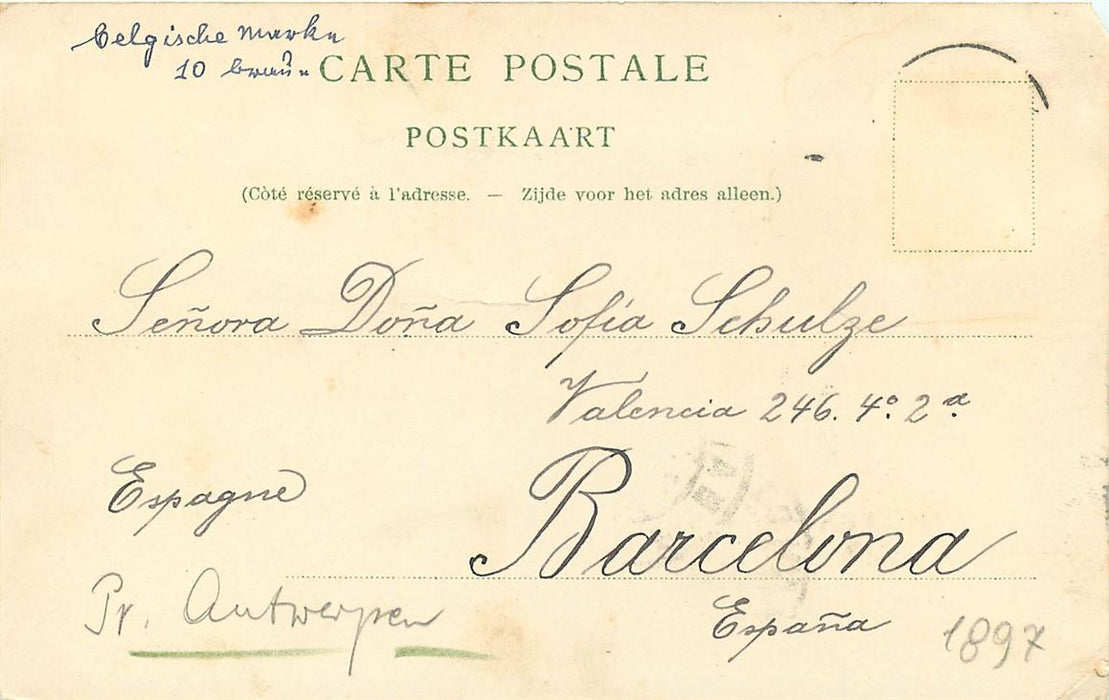 Belgische Marke
10 braun
CARTE POSTALE
POSTKAART
(Côté réservé à l'adresse. — Zijde voor het adres alleen.)
Señora Doña Sofia Schulze
Valencia 246. 4º 2ª
Espagne
Barcelona
España
Pr. Antwerpen
1897